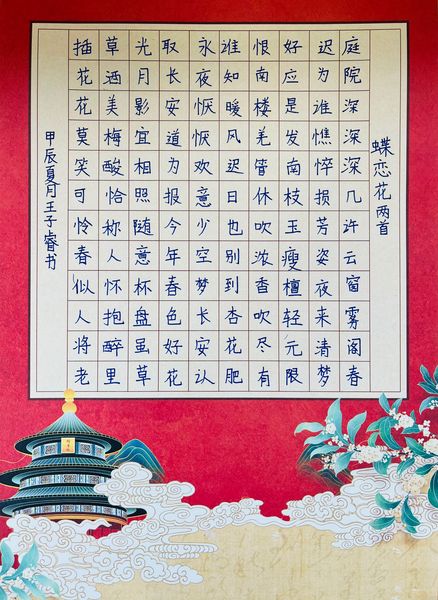 蝶恋花两首
庭院深深深几许云窗雾阁春
迟为谁憔悴损芳姿夜来清梦
好应是发南枝玉瘦檀轻无限
恨南楼羌管休吹浓香吹尽有
谁知暖风迟日也别到杏花肥
永夜恹恹欢意少空梦长安认
取长安道为报今年春色好花
光月影宜相照随意杯盘虽草
草酒美梅酸恰称人怀抱醉里
插花花莫笑可怜春似人将老
甲辰夏月王子睿书